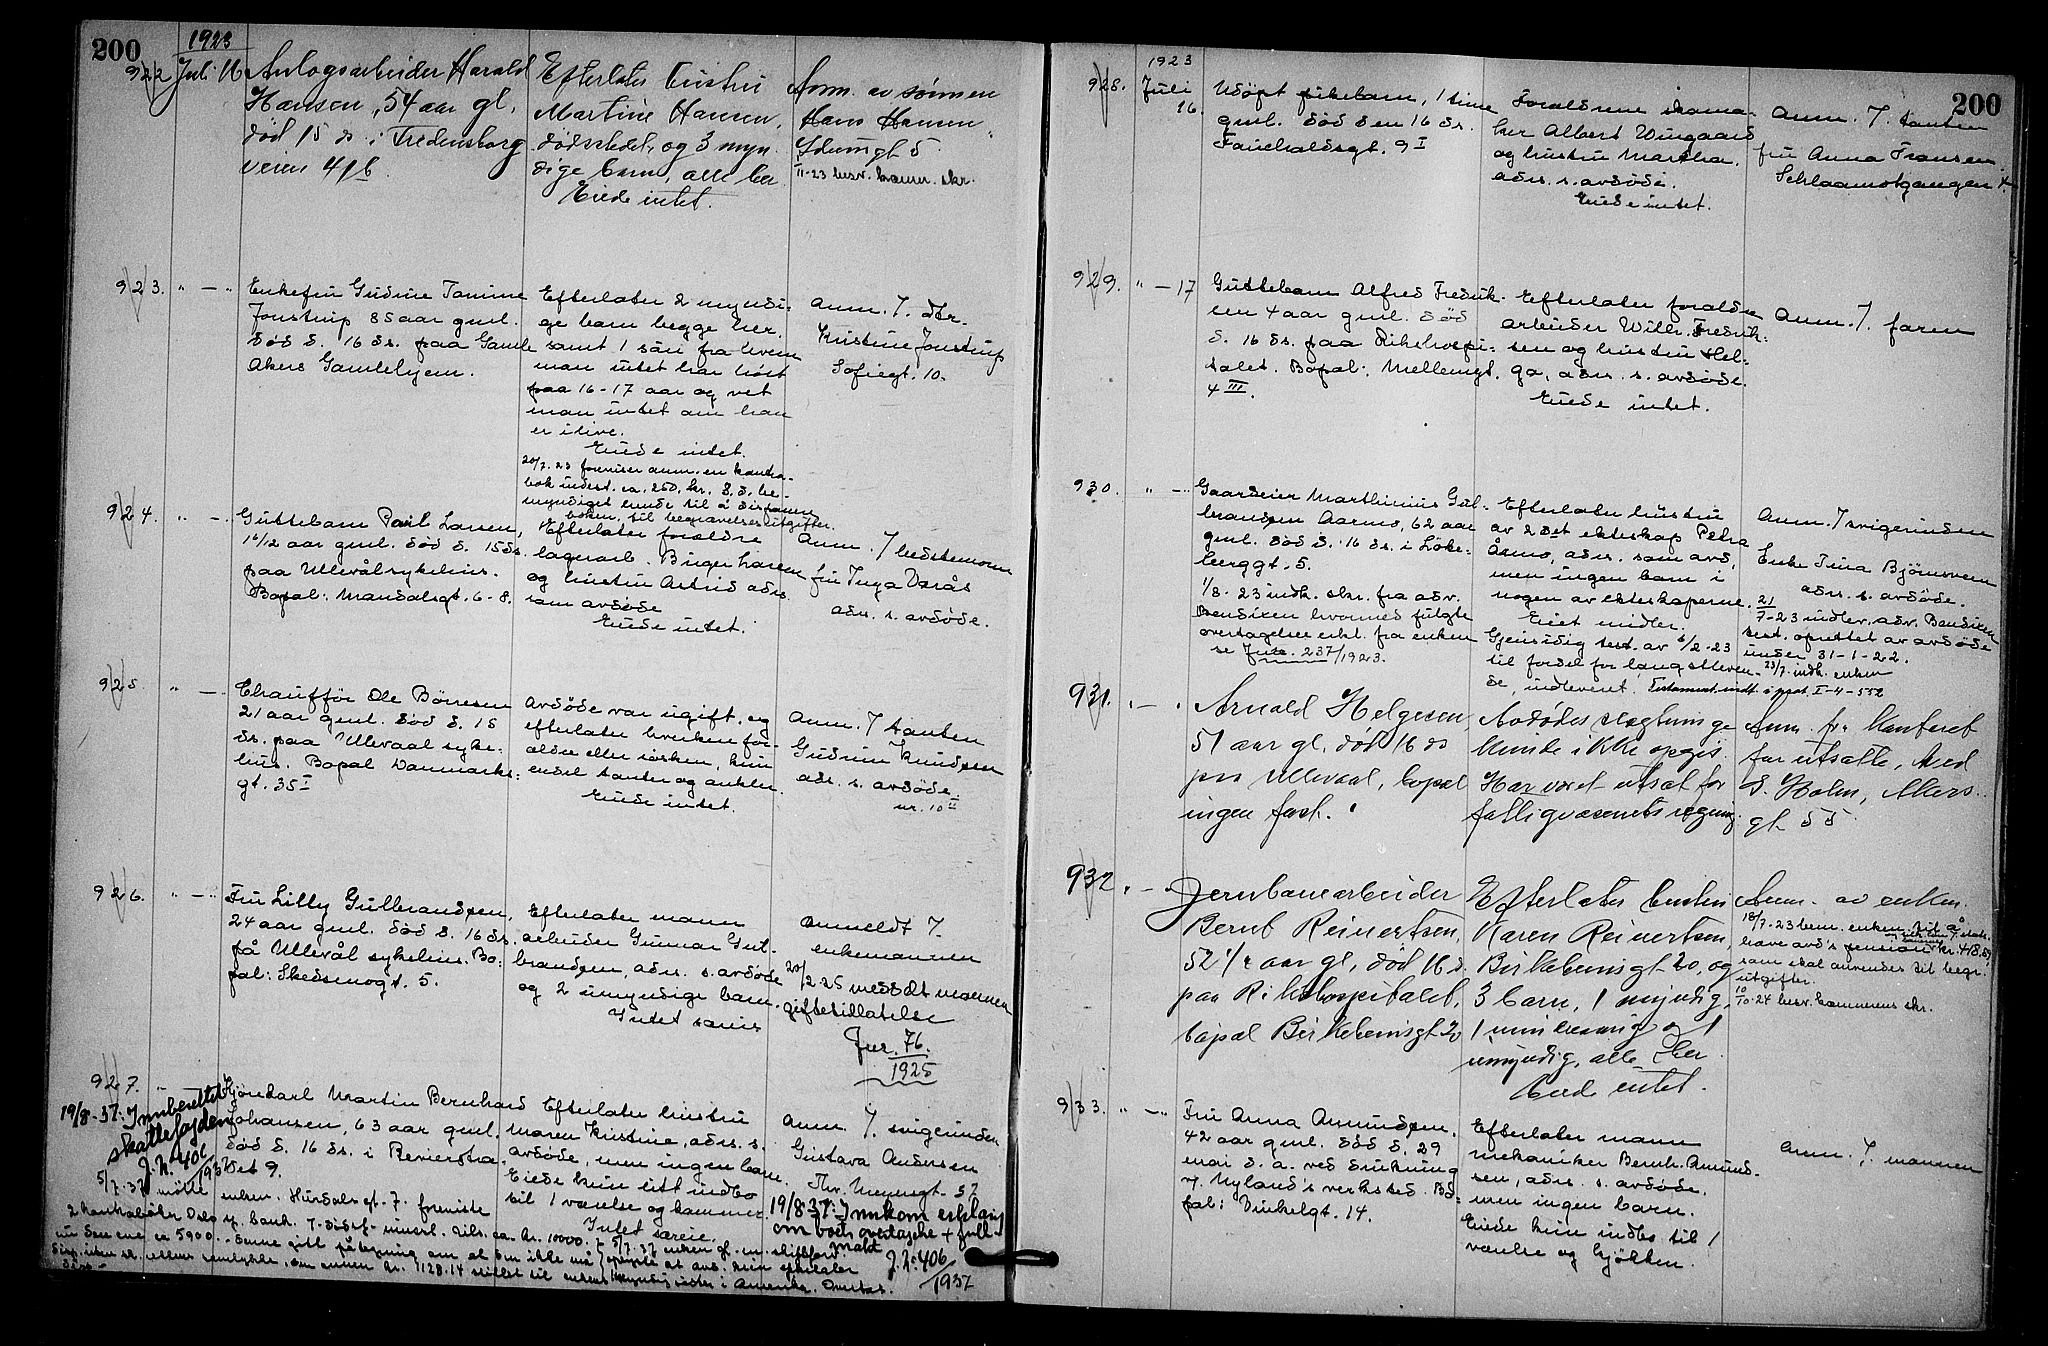 200
1923
922 Juli 16 Anlægsarbeider Harald
Hansen, 54 aar gl.
død 15 ds i Fredensborg
veien 41b
Efterlater hustru
Martine Hansen,
dødsstedet, og 3 myn
dige barn, alle her
Eiede intet.
Anm. av sønnen
Hans Hansen
gt 5
923. " — " Enkefru Gudine Tomine
Jonstrup 85 aar gml.
død d. 16 ds. paa Gamle
Akers Gamlehjem.
Efterlater 2 myndi-
ge barn begge her,
samt 1 søn fra hvem
man intet har hørt
paa 16-17 aar og vet
man intet om han
er ilive.
Eiede intet.
20/7.23 foreviser anm. en kontra-
bok indest. ca. 250. kr. S. d. be-
myndiget enke til å disponere
boken til begravelsesutgifter.
Anm. f. dtr.
Kristine Jonstrup
Sofiegt. 10.
924. " — Guttebarn Paul Larsen,
1 6/12 aar gml. død d. 15 ds.
paa Ullevål sykehus.
Bopal: Mandalsgt. 6-8.
Efterlater forældre
lagerarb. Birger Larsen
og hustru Astrid adrs.
som avdøde
Eiede intet.
Anm. f bedstemoren
fru Inga Darås
adrs. s. avdøde.
925. " — Chauffør Ole Børresen
21 aar gml. død d. 15
ds. paa Ullevaal syke-
hus. Bopal Danmarks-
gt. 35 I
Avdøde var ugift, og
efterlater hverken for-
ældre eller søsken, kun
endel tanter og onkler.
Eiede intet.
Anm. f tanten
Gudrun Knudsen
adr. s. avdøde.
nr. 10 II
926. " — " Fru Lilly Gulbrandsen,
24 aar gml. død d. 16 ds.
på Ullevål sykehus. Bo-
pal: Skedsmogt. 5.
Efterlater mann
arbeider Gunnar Gul-
brandsen, adrs. s. avdøde
og 2 umyndige barn.
Intet særeie
Anmeldt f.
enkemannen
20/2-25 meddelt mannen
giftetillatelse
Jnr. 76.
1925
927. " Martin Bernhard
Johansen, 63 aar gml.
død d. 16 ds. i Revierstræ-
det 9.
Efterlater hustru
Maren Kristine, adrs. s.
avdøde, men ingen barn.
Eiede kun litt indbo
til 1 værelse og kammer.
Intet særeie.
Anm. f. svigerinden
Gustava Andersen
Thv. Meyersgt. 57
19/8-37: Innberettet
skattefogden
J.N. 406
1937
19/8 37: Innkom erklæring
om boets overtagelse + full-
makt
J.N. 406
1937
5/7.37 møtte enken. Hurdalsgt. 7. foreviste
200
1923
928. Juli 16. Udøpt pikebarn, 1 time
gml. død den 16 ds.
Fauchaldsgt. 9 I
Forældrene skoma-
ker Albert Wingaard
og hustru Martha,
adrs. s. avdøde.
Eiede intet.
Anm. f. tanten
fru Anna Fransen
929. " — 17 Guttebarn Alfred Fredrik-
sen 4 aar gml. død
d. 16 ds. paa Rikshospi-
talet. Bopal: Møllergt.
4 III.
Efterlater forældre
arbeider Wilh. Fredrik-
sen og hustru Hel-
ga, adrs. s. avdøde.
Eiede intet.
Anm. f. faren
930. " — " Gaardeier Marthinius Gul-
brandsen Aarmo, 62 aar
gml. død d. 16 ds. i Løke-
berggt. 5.
1/8.23 indk. skr. fra adv.
Bendixen hvormed fulgte
overtagelses erkl. fra enken
se Jnr. 237/1923.
Efterlater hustru
av 2det ekteskap Petra
Årmo, adrs. som avd.
men ingen barn i
nogen av ekteskaperne.
Eiet midler.
Gjensidig test. av 6/2-23
til fordel for længstleven-
de, indlevert. Testament indt. i prot. I-4-552
Anm. f svigerinden
Enke Tina Bjørnsveen
adrs. s. avdøde.
21/7-23 indlev. adv. Bendixen
test. oprettet av avdøde
under 31-1-22.
23/7. indk. enken
931. " — " Arnold Helgesen,
51 aar gl. død 16 ds
paa Ullevaal, bopal
ingen fast.
Avdødes slegtninge
kunde ikke opgis
Har været utsat for
fattigvæsenets regning.
Anm. fra Kontoret
for utsatte, ved
S. Holm, Akers-
gt. 55
932 " — Jernbanearbeider
Bernt Reinertsen,
52 1/2 aar gl, død 16 ds.
paa Rikshospitalet,
bopal Birkebeinergt 20
Efterlater hustru
Karen Reinertsen,
Birkebeinergt 20, og
3 barn, 1 myndig,
1 mindreaarig og 1
umyndig, alle her
Eiede intet.
Anm. av enken.
18/7-23 bem. enken til å
hæve avd's pension kr. 418.59
som skal anvendes til begr.
utgifter.
10/10-24 besv. kæmnerens skr.
933. " — " Fru Anna Amundsen,
42 aar gml. død d. 29
mai d. a. ved drukning
v. Nyland's verksted. Bo-
pal: Vinkelgt. 14.
Efterlater mann
mekaniker Bernh. Amund-
sen, adrs. s. avdøde,
men ingen barn.
Eiede kun indbo til 1
værelse og kjøkken.
Anm. f. mannen